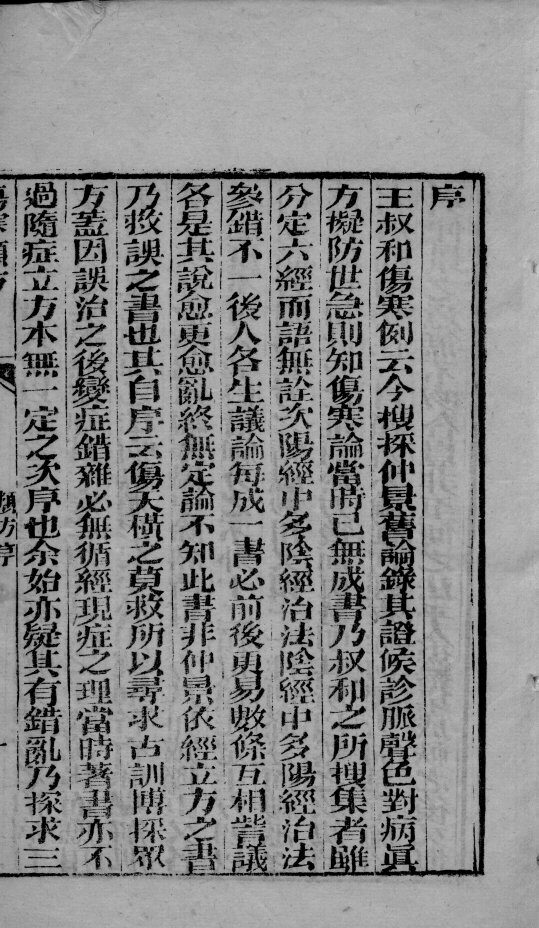 序
王叔和傷寒例云今搜採仲景舊論錄其證候診脈聲色對病眞
方擬防世急則知傷寒論當時已無成書乃叔和之所搜集者雖
分定六經而語無詮次陽經中多陰經治法陰經中多陽經治法
參錯不一後人各生議論每成一書必前後更易數條互相訾議
各是其說愈更愈亂終無定論不知此書非仲景依經立方之書
乃救誤之書也其自序云傷夭橫之莫救所以尋求古訓博採眾
方蓋因誤治之後變症錯雜必無循經現症之理當時著書亦不
過隨症立方本無一定之次序也余始亦疑其有錯亂乃探求三
傷寒類方
類方序
一